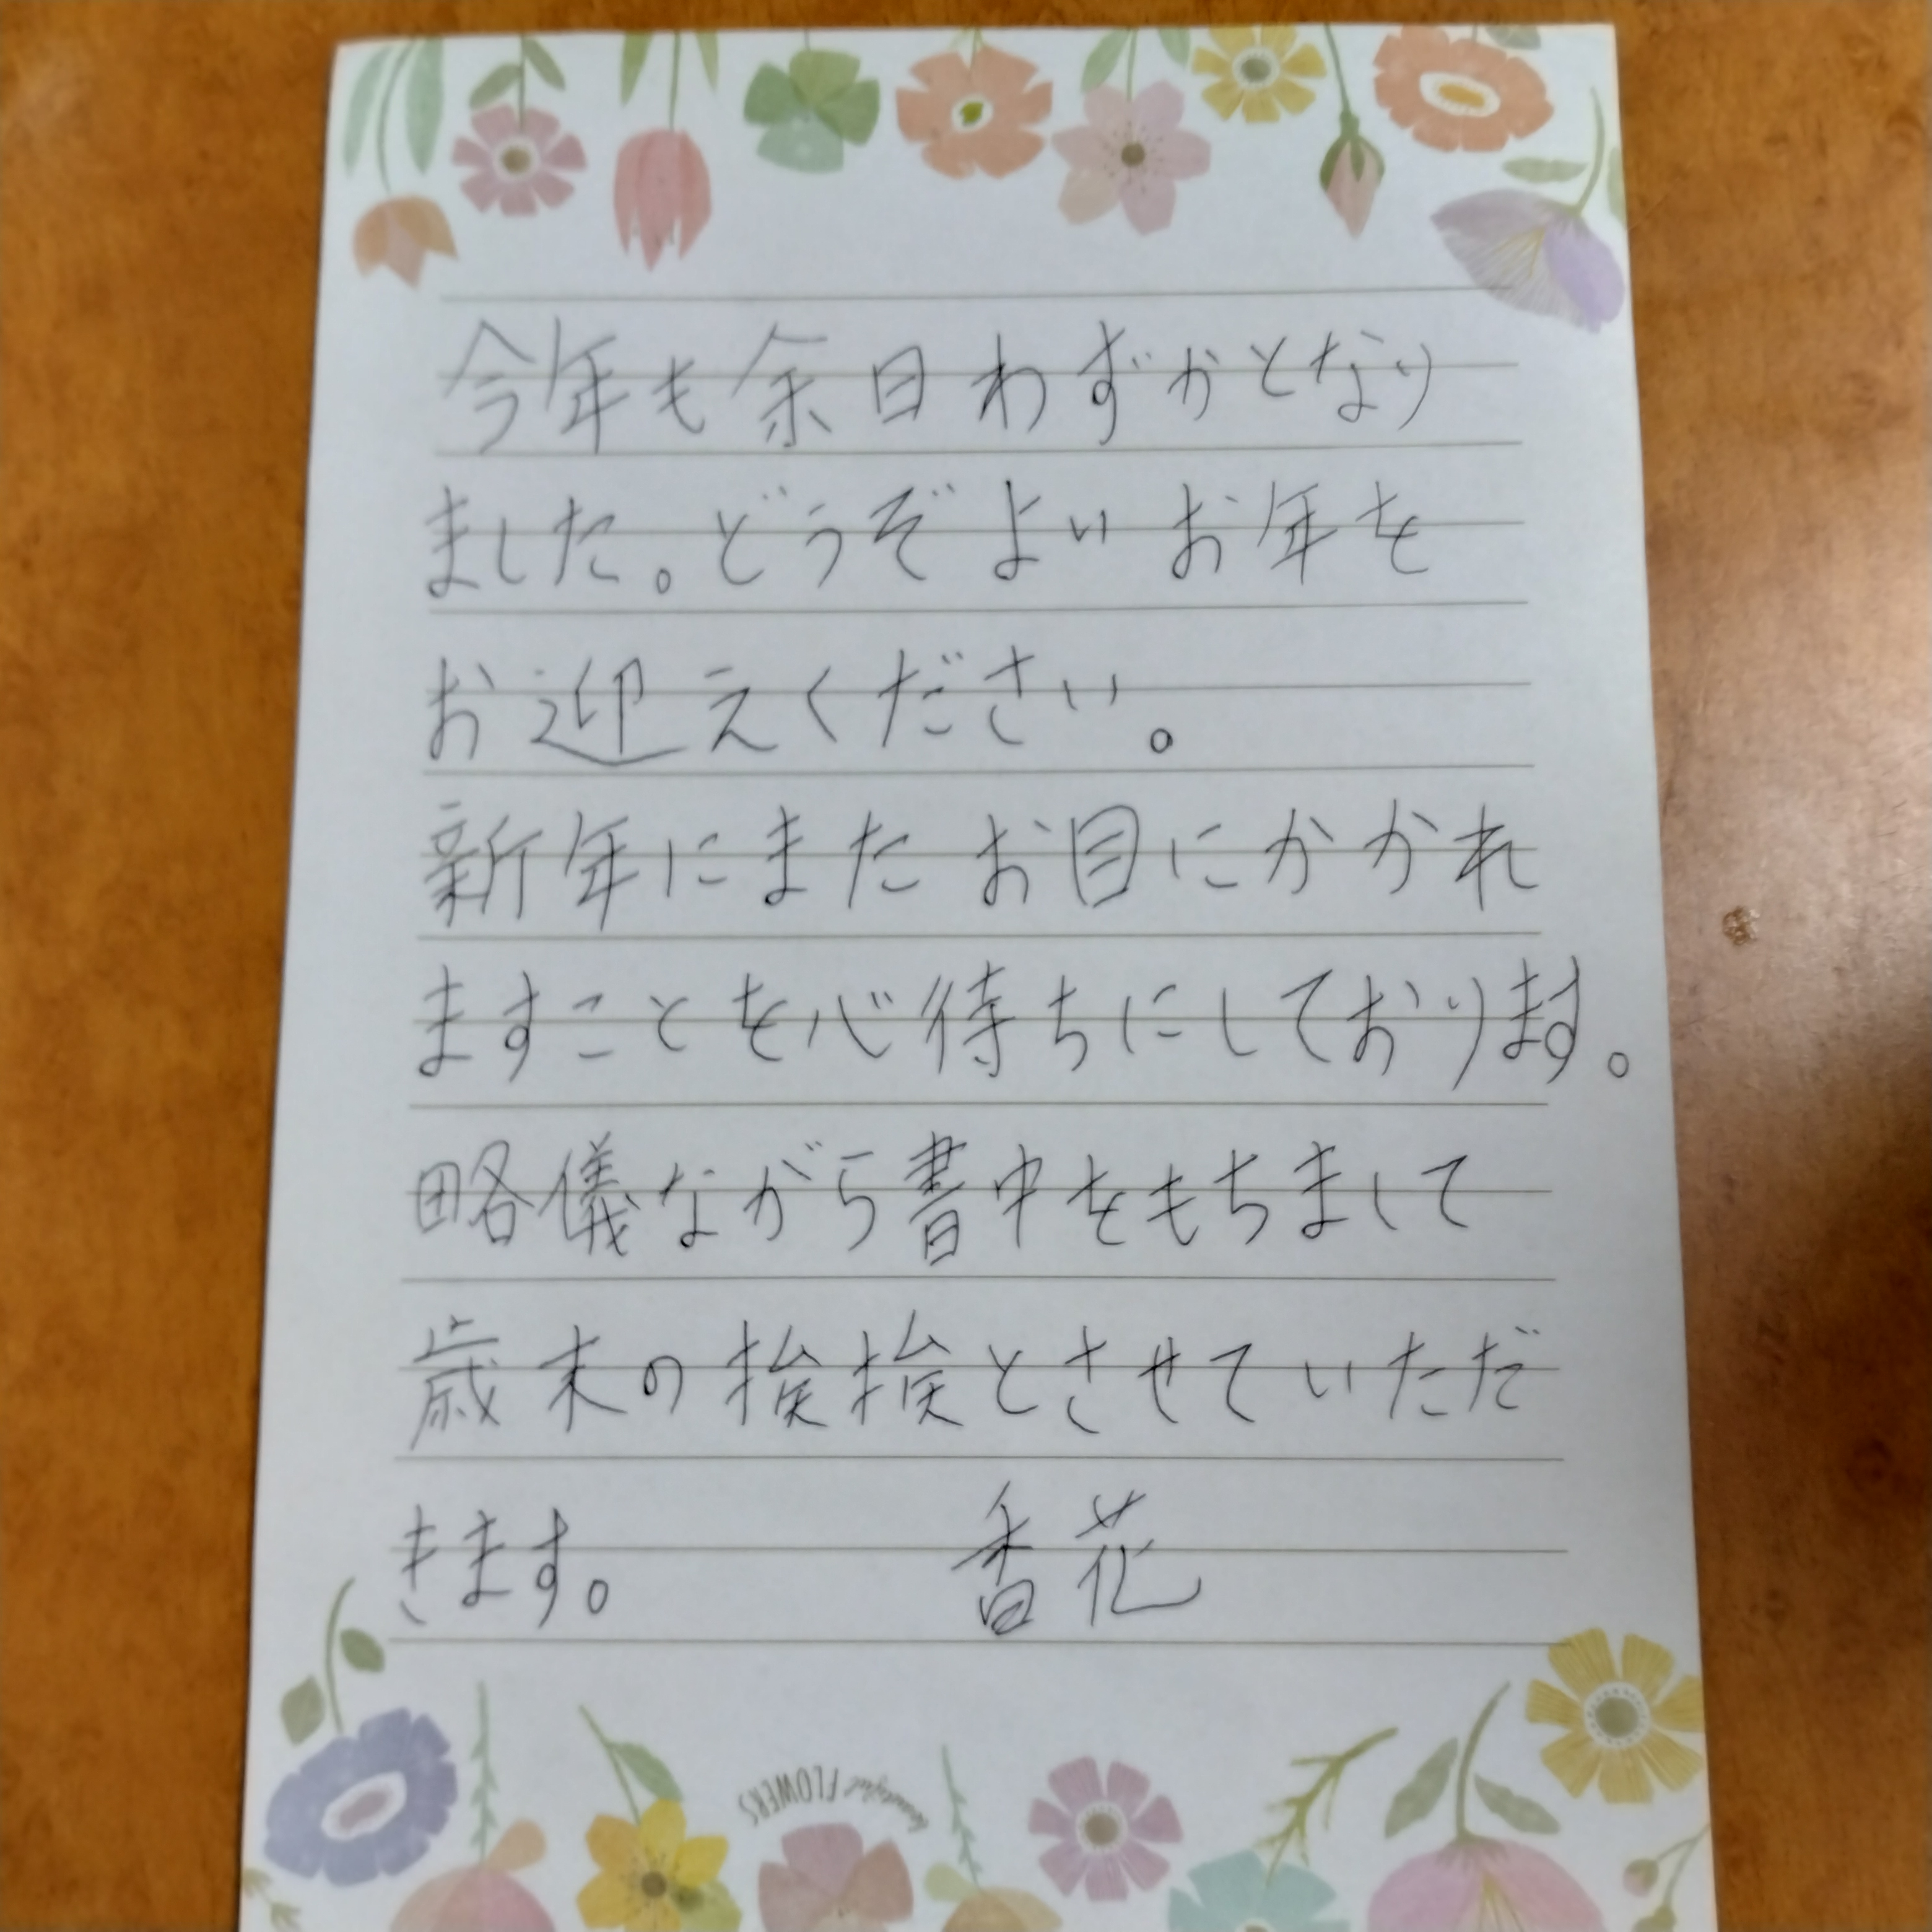 今年も余日わずかとなり
ました。どうぞよいお年を
お迎えください。
新年にまたお目にかかれ
ますことを心待ちにしております。
略儀ながら書中をもちまして
歳末の挨挨とさせていただ
きます。 香花
beautiful FLOWERS